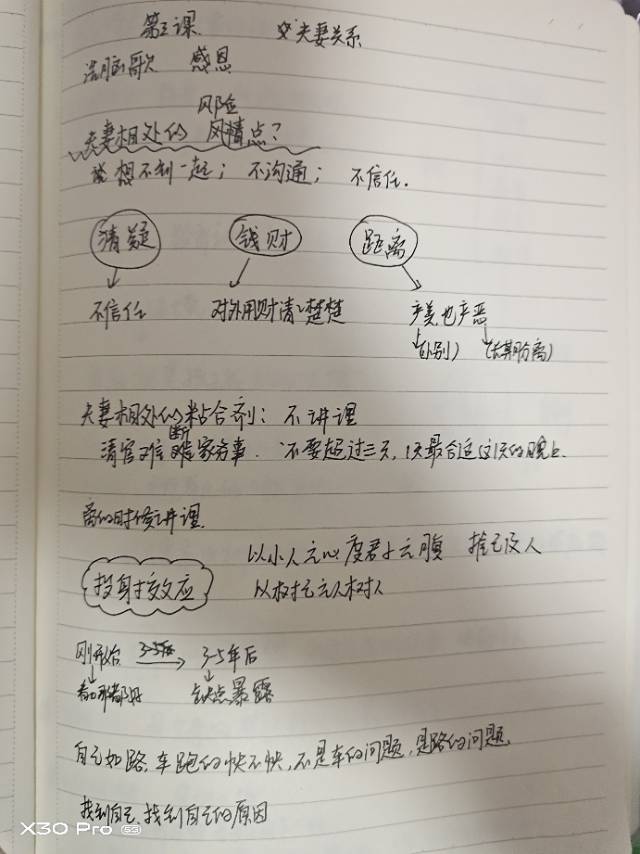 第三课 夫妻关系
洗脑歌 感恩
风险
夫妻相处的 风精点？
想不到一起； 不沟通； 不信任.
猜疑 钱财 距离
不信任 对外用财清清楚楚 产美也产恶
(小别) (长期分离)
夫妻相处的粘合剂： 不讲理
断
清官难 家务事. 不要超过三天, 1天最合适 这1天的晚上.
离的时候讲理.
投射效应 以小人之心 度君子之腹 推己及人
以
刚开始 3-5年 3-5年后
看哪都好 缺点暴露
自己如路, 车跑的快不快, 不是车的问题, 是路的问题.
找到自己, 找到自己的原因
X30 Pro 5G